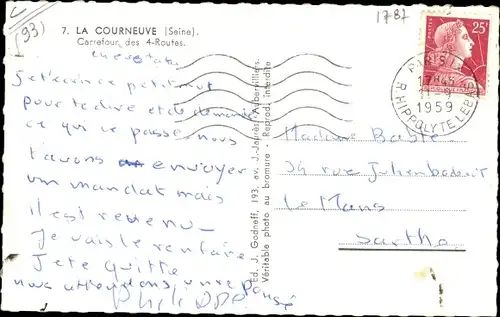 (93)
1787
7. LA COURNEUVE (Seine).
Carrefour des 4-Routes.
25F
PARIS
17H45
1959
R. HIPPOLYTE LEBAS
Je t'écris ce petit mot
pour te dire et de demander
ce qui se passe nous
t'avons envoyer
un mandat mais
il est revenu
Je vais le renfaire
Je te quitte
nous attendons une
Madame
34 rue Julien
Le Mans
Sarthe
Ed. J. Godneff, 193, av. J.-Jaurès-Aubervilliers.
Véritable photo au bromure - Reprod. interdite